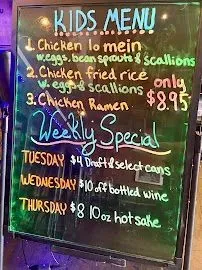 KIDS MENU
1. Chicken lo mein
w. eggs, bean sprouts & scallions
2. Chicken fried rice
w. eggs & scallions
only
$8.95
3. Chicken Ramen
Weekly Special
TUESDAY $4 Draft & select cans
WEDNESDAY $10 off bottled wine
THURSDAY $8 10oz hot sake